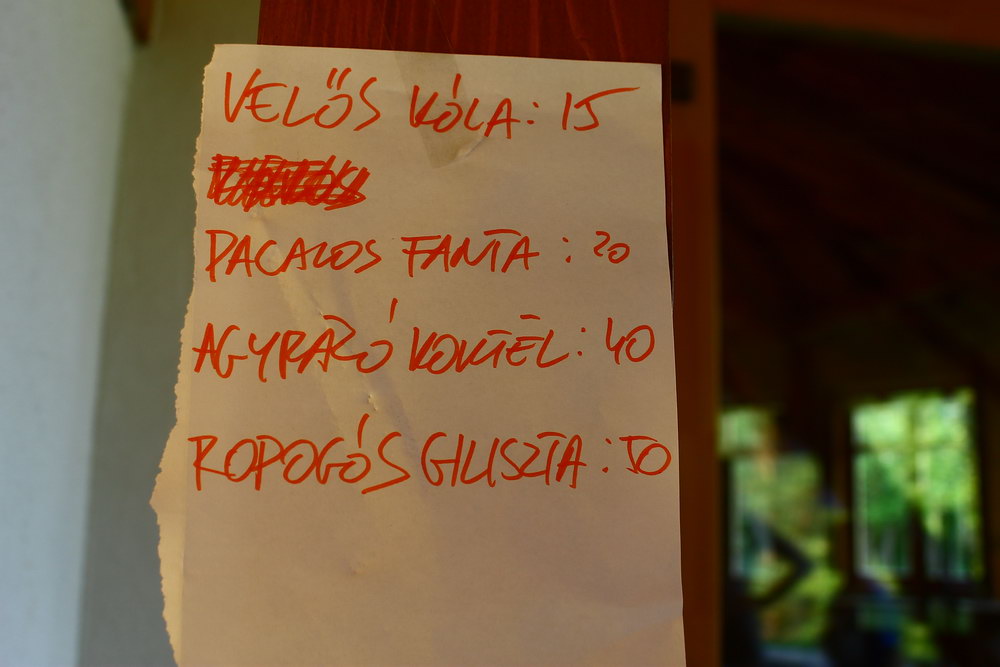 VELŐS KÓLA: 15
PACALOS FANTA: 20
AGYRÁZÓ KOKTÉL: 40
ROPOGÓS GILISZTA: 50